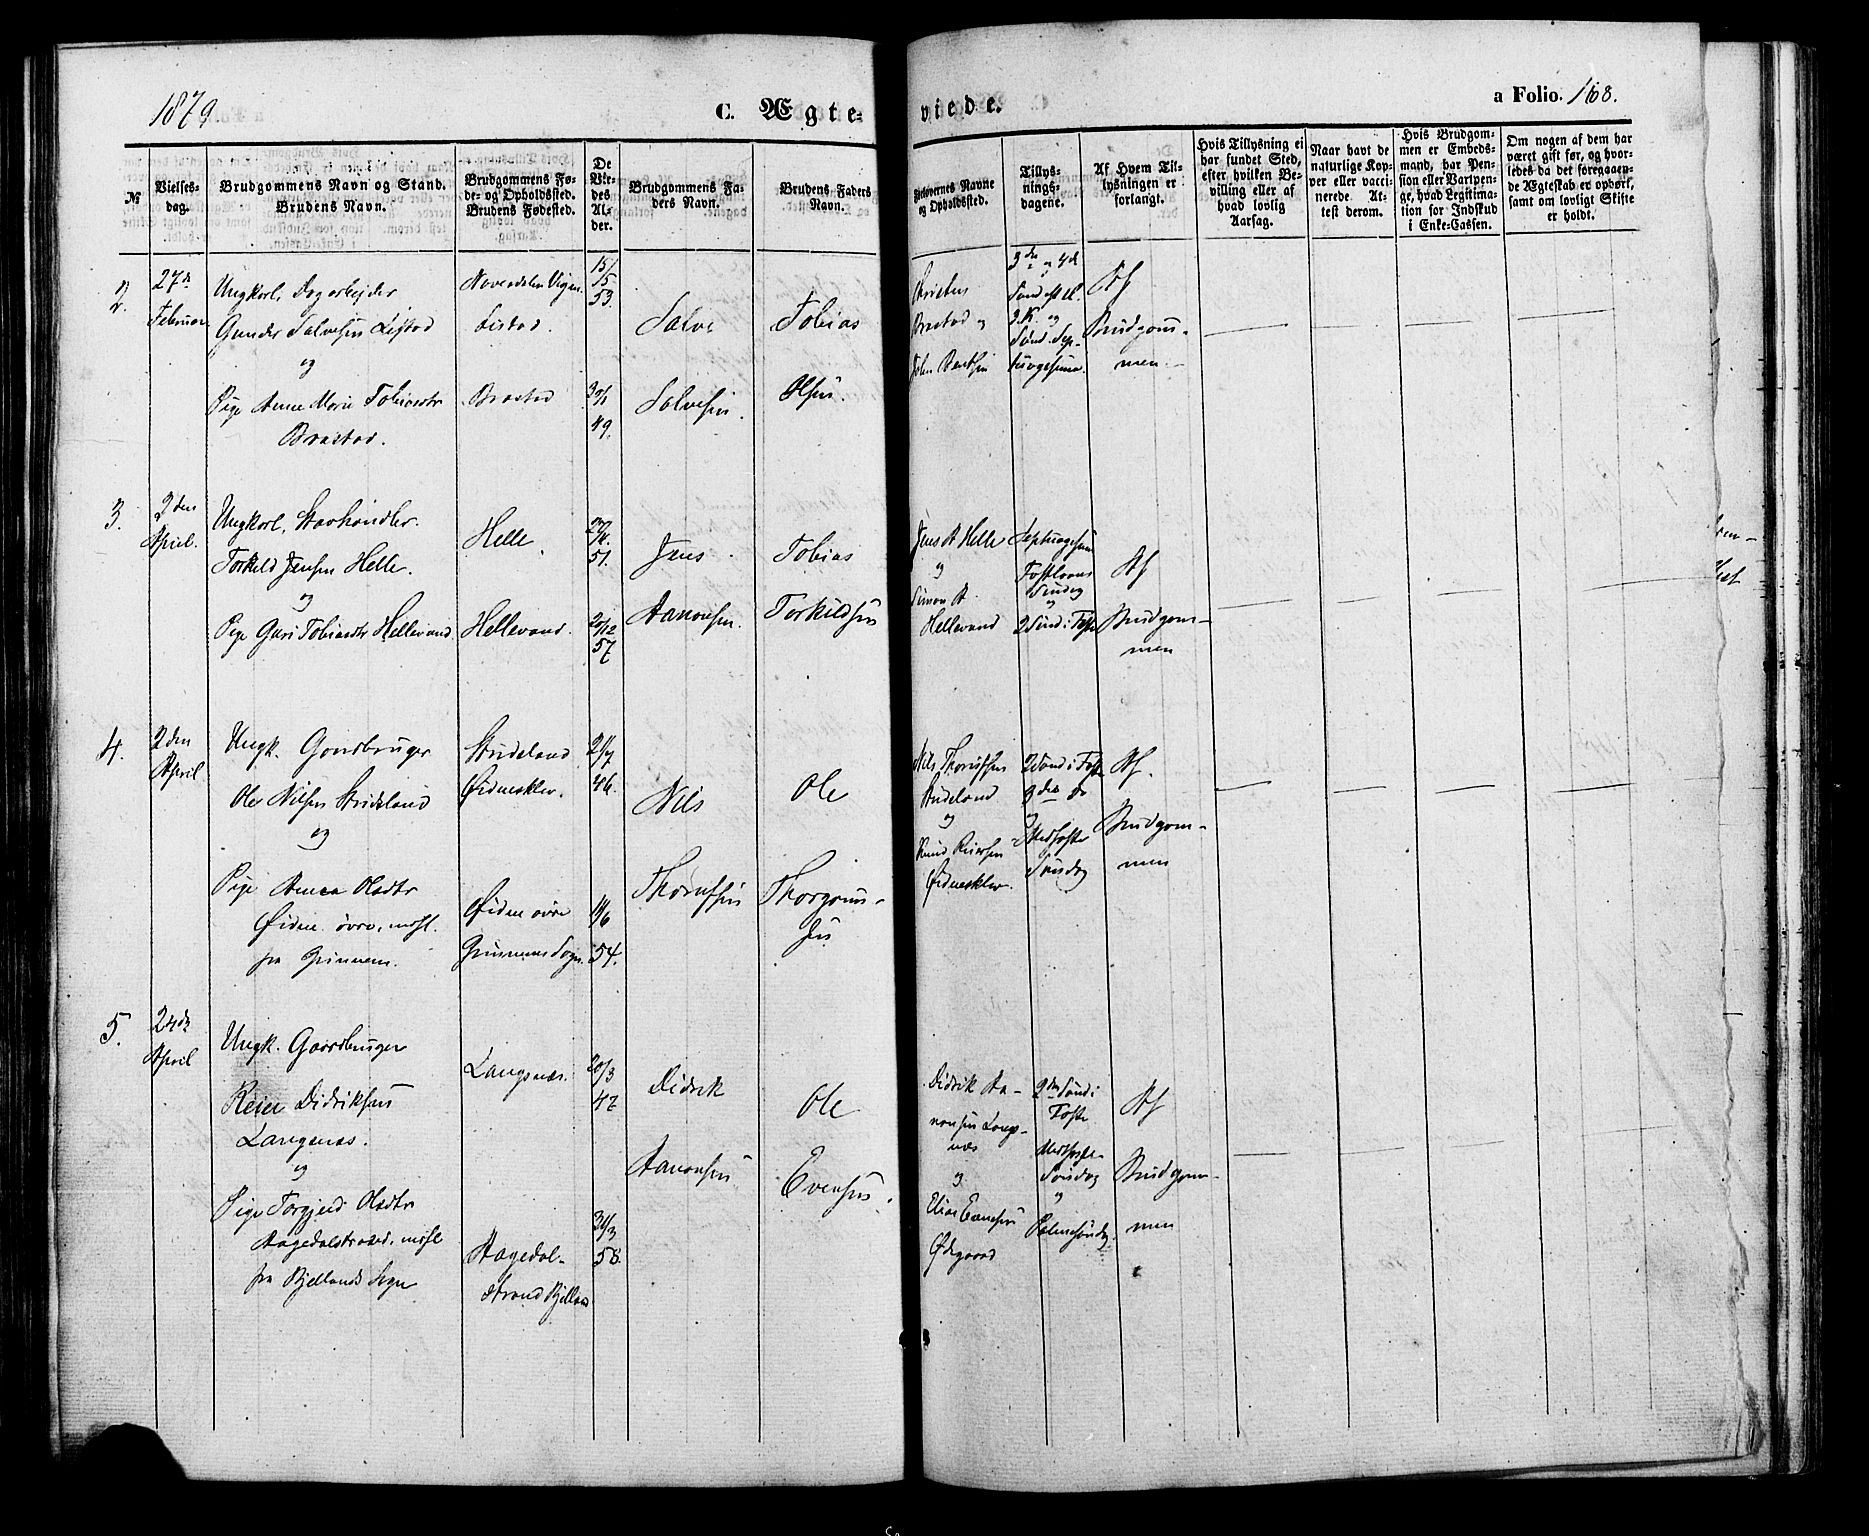 1879
C. Ægte-
viede.
a Folio. 168.
№
Vielses-
dag.
Brudgommens Navn og Stand.
Brudens Navn.
Brudgommens Fø-
de- og Opholdssted.
Brudens Fødested.
De
Vie-
des
Al-
der.
Brudgommens Fa-
ders Navn.
Brudens Faders
Navn.
Forlovernes Navne
og Opholdssted.
Tillys-
nings-
dagene.
Af Hvem Til-
lysningen er
forlangt.
Hvis Tillysning ei
har fundet Sted,
efter hvilken Be-
villing eller af
hvad lovlig
Aarsag.
Naar havt de
naturlige Kop-
per eller vacci-
nerede At-
test derom.
Hvis Brudgom-
men er Embeds-
mand, har Pen-
sion eller Vartpen-
ge, hvad Legitima-
tion for Indskud
i Enke-Cassen.
Om nogen af dem har
været gift før, og hvor-
ledes da det foregaaen-
de Ægteskab er ophørt,
samt om lovligt Skifte
er holdt.
2.
27de
Februar
Ungkarl, Dagarbejder
Gunder Salvesen Listad
og
Pige Anne Marie Tobiasdtr
Brastad.
Listad.
Brastad
15/5
53.
49.
Salve
Salvesen.
Tobias
Olsen.
Christen
Brastad og
John Berthsen
3die og 4de
Af
Brudgom-
men.
3.
2den
April.
Ungkarl, Stavhandler.
Torkild Jensen Helle.
og
Pige Guri Tobiasdtr Hellevand
Helle.
Hellevand.
51.
20/12
57
Jens
Aanonsen.
Tobias
Torkildsen
Jens A Helle
og
Simon A.
Hellevand
Septuagesima
Fastelavns
Søndag
og
2 Sønd i Faste
Af
Brudgom-
men
4.
2den
April
Ungk. Gaardbruger
Ole Nilsen Strisland
og
Pige Anna Olsdtr
Øidne øvre, indfl.
fra Grinnem.
Øidneskler.
Øidne øvre
Grinnems Sogn.
21/7
46.
54.
Nils
Ole
2 Sønd i Faste
3die do
og
Midfaste
Søndag
Af.
Brudgom-
men
5.
24de
April
Ungk. Gaardbruger
Reier Didriksen
Langenæs.
og
Pige Torgjerd Olsdtr
Aagedalstrand, indfl
fra Bjellands Sogn
Langenæs.
Aagedal-
strand Bjelland
20/3
47
31/3
58.
Didrik
Aanonsen
Ole
Evensen.
Didrik Aa-
nonsen Lang-
næs
og
Elias Evensen
Ødegaard
2den Sønd i
Faste
Midfaste-
Søndag
og
Palmesøndag
Af
Brudgom-
men